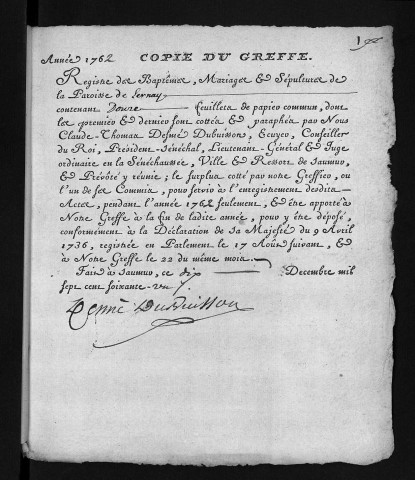 Année 1762 COPIE DU GREFFE.
Registre des Baptêmes, Mariages & Sépultures de
la Paroisse de Vernay
contenant Douze feuillets de papier commun, dont
les premier & dernier sont cottés & paraphés par Nous
Claude-Thomas Desmé Dubuisson, Ecuyer, Conseiller
du Roi, Président-Sénéchal, Lieutenant-Général & Juge
ordinaire en la Sénéchaussée, Ville & Ressort de Saumur,
& Prévôté y réunie; le surplus cotté par notre Greffier, ou
l'un de ses Commis, pour servir à l'enregistrement desdits
Actes, pendant l'année 1762 seulement, & être apporté à
Notre Greffe à la fin de ladite année, pour y être déposé,
conformément à la Déclaration de Sa Majesté du 9 Avril
1736, registrée en Parlement le 17 Août suivant, &
à Notre Greffe le 22 du même mois.
Fait à Saumur, ce dix Decembre mil
sept cent soixante-un
Desmé Dubuisson